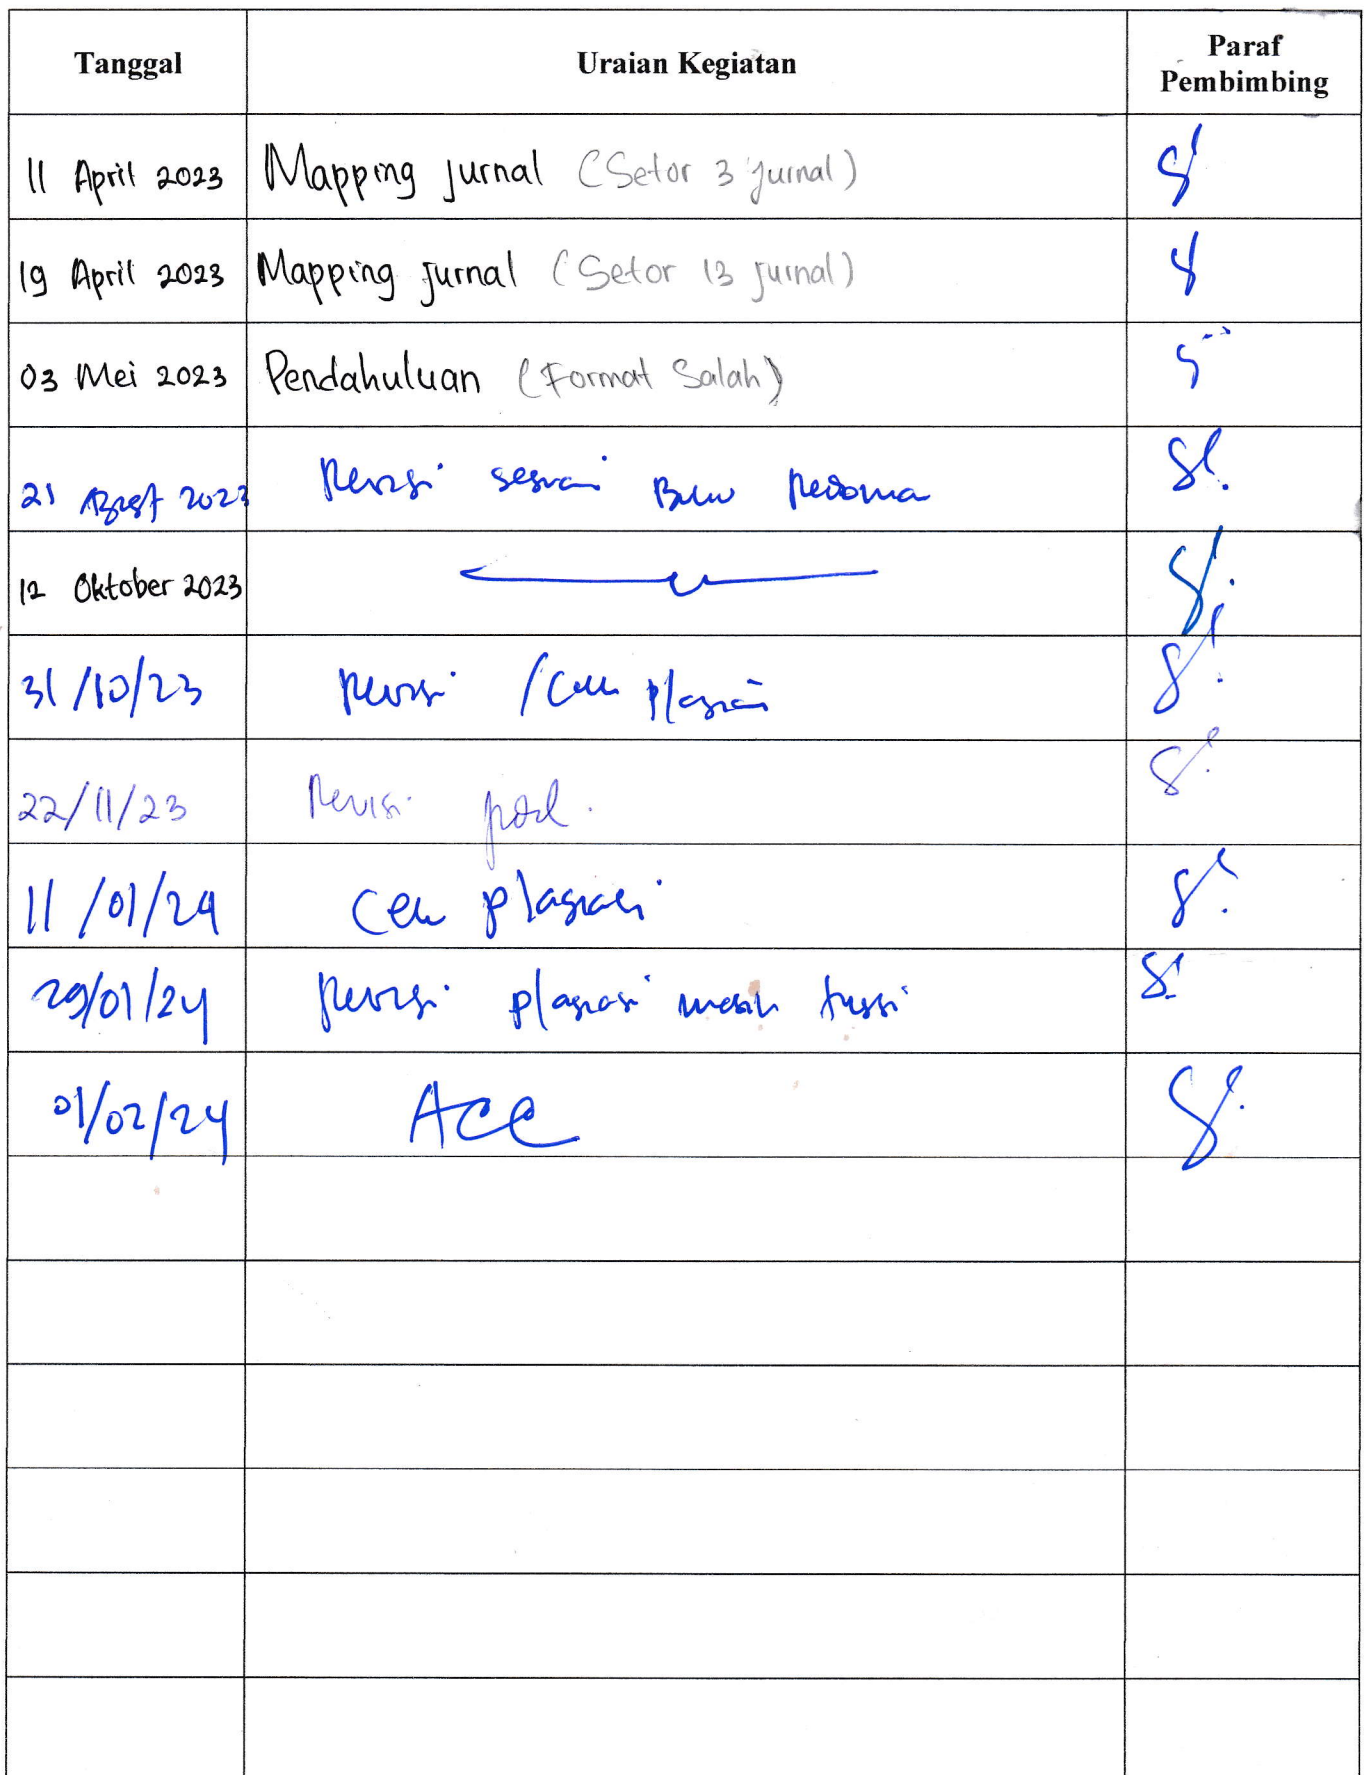 Tanggal Uraian Kegiatan Paraf
Pembimbing
11 April 2023 Mapping Jurnal (Setor 3 jurnal)
19 April 2023 Mapping Jurnal (Setor 13 jurnal)
03 Mei 2023 Pendahuluan (Format Salah)
21 2023 Revisi sesuai Buku Pedoman
12 Oktober 2023
31/10/23 Revisi / Cek plagiasi
22/11/23 Revisi
11/01/24 Cek plagiasi
29/01/24 Revisi plagiasi masih tinggi
01/02/24 ACC